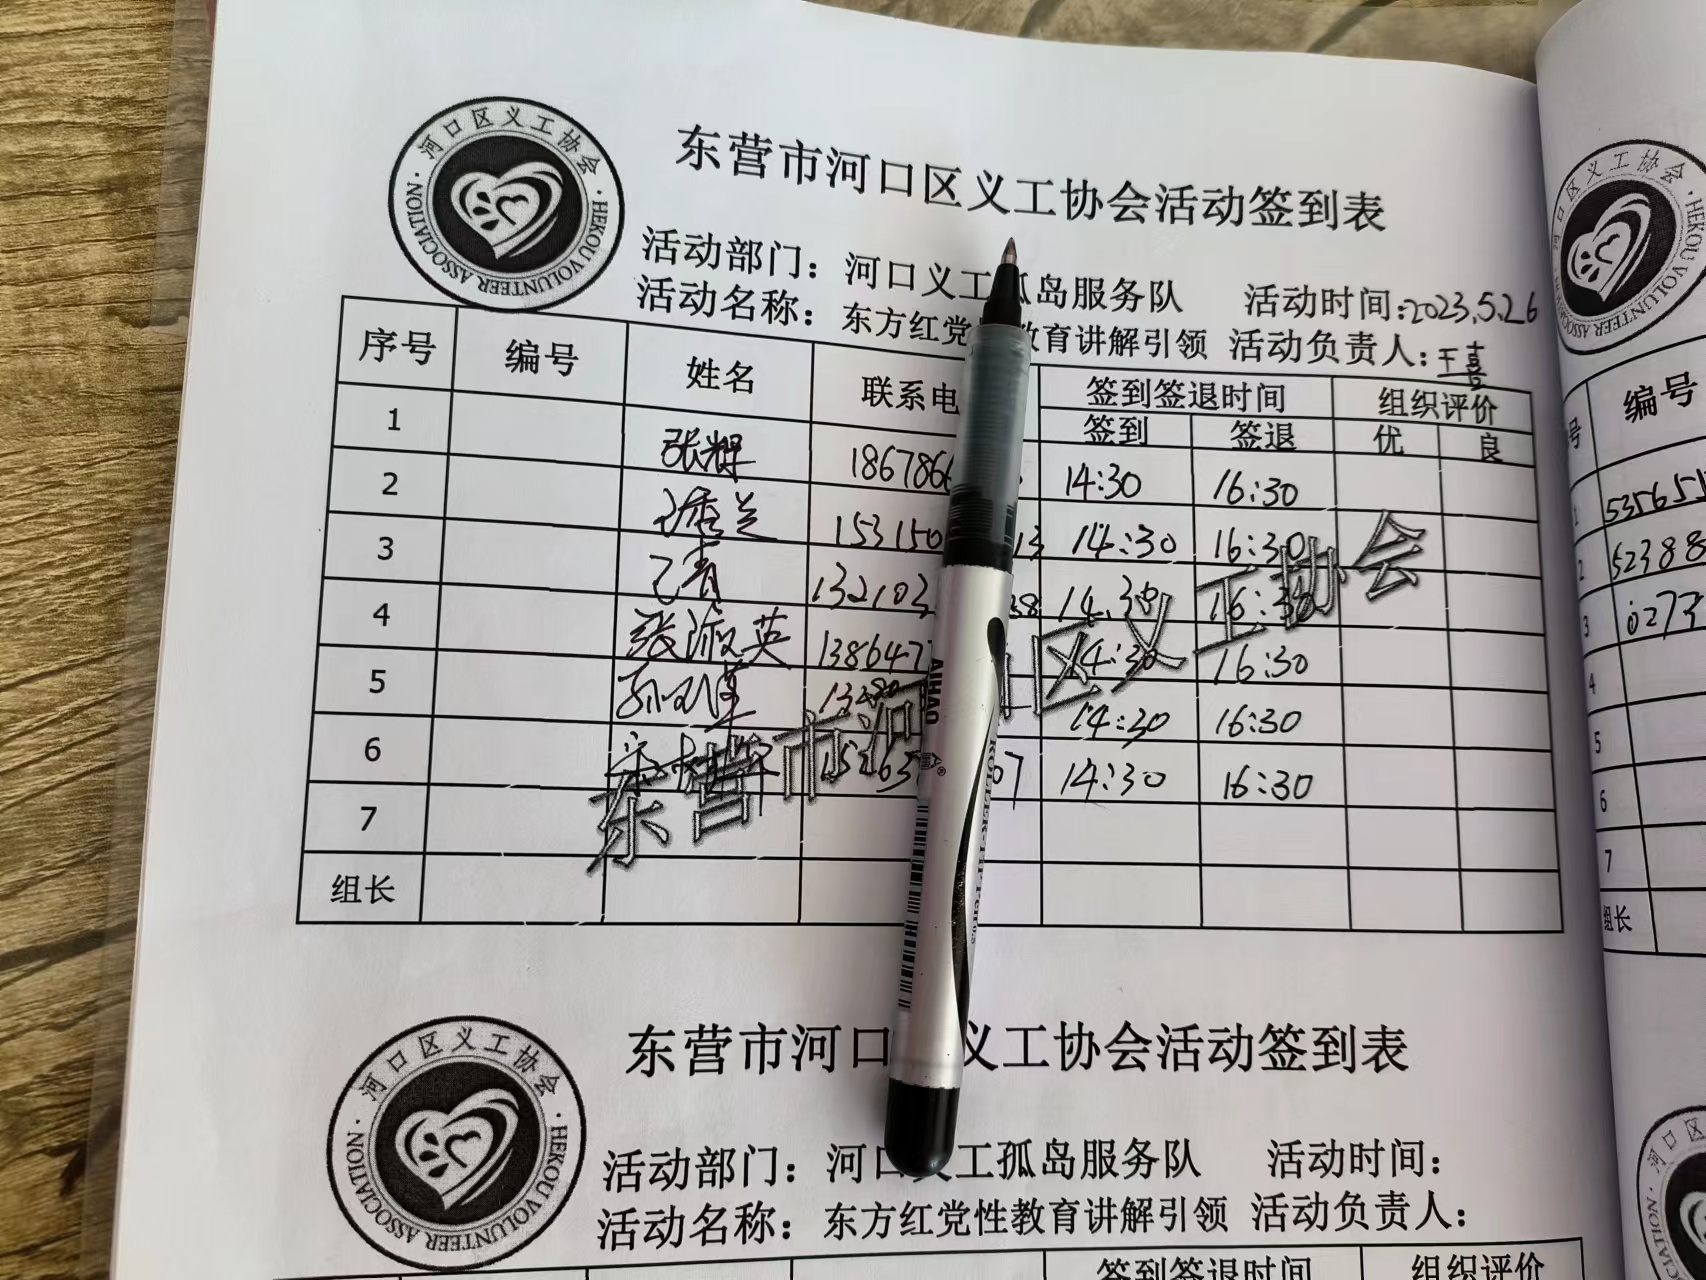 河口区义工协会
HEKOU VOLUNTEER ASSOCIATION
东营市河口区义工协会活动签到表
活动部门：河口义工孤岛服务队 活动时间：2023.5.26
活动名称：东方红党性教育讲解引领 活动负责人：王喜
序号 编号 姓名 联系电 签到签退时间 组织评价
签到 签退 优 良
1 张辉 1867866 14:30 16:30
2 153150 13 14:30 16:30
3 132103 38 14:30 16:30
4 张淑英 138647 14:30 16:30
5 14:30 16:30
6 15263 07 14:30 16:30
7
组长
东营市河口区义工协会
AIHAO
河口区义工协会
HEKOU VOLUNTEER ASSOCIATION
东营市河口 义工协会活动签到表
活动部门：河口义工孤岛服务队 活动时间：
活动名称：东方红党性教育讲解引领 活动负责人：
签到签退时间 组织评价
义工协会
HEKOU VOLUNTEER ASSOCIATION
号 编号
1 535651
2 52388
3 0273
4
5
6
7
组长